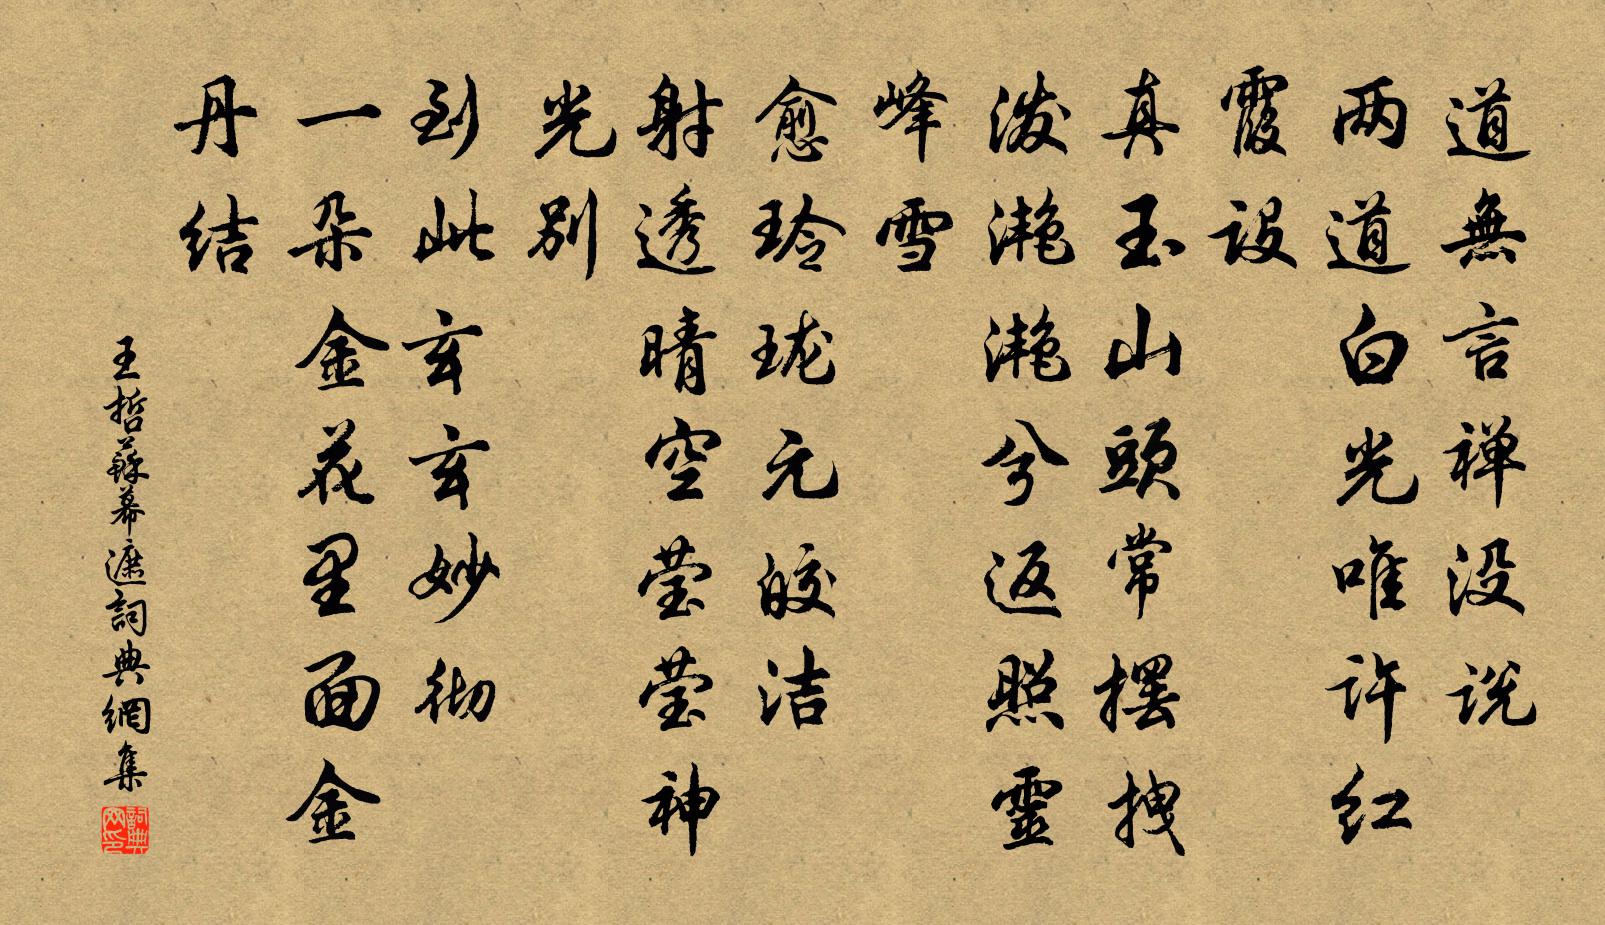 道無言禅没说
两道白光唯许红
霞设
真玉山頭常摆拽
泼滟滟兮返照靈
峰雪
愈玲珑元皎洁
射透晴空莹莹神
光别
到此玄玄妙彻
一朵金花里面金
丹结
王哲蘇幕遮詞典網集
詞典网印